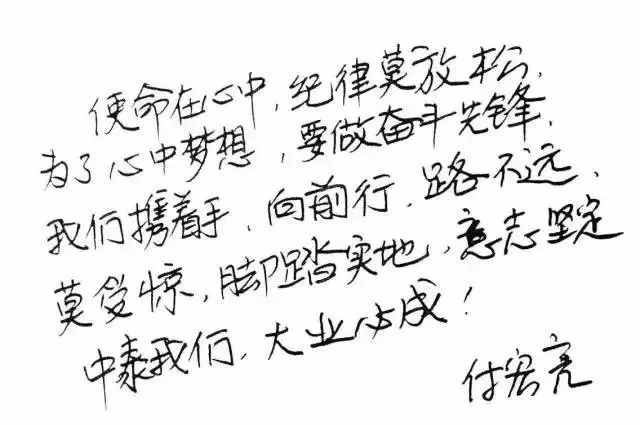 使命在心中,纪律莫放松,
为了心中梦想,要做奋斗先锋,
我们携着手,向前行,路不远,
莫受惊,脚踏实地,意志坚定
中泰我们,大业必成!
付宏亮